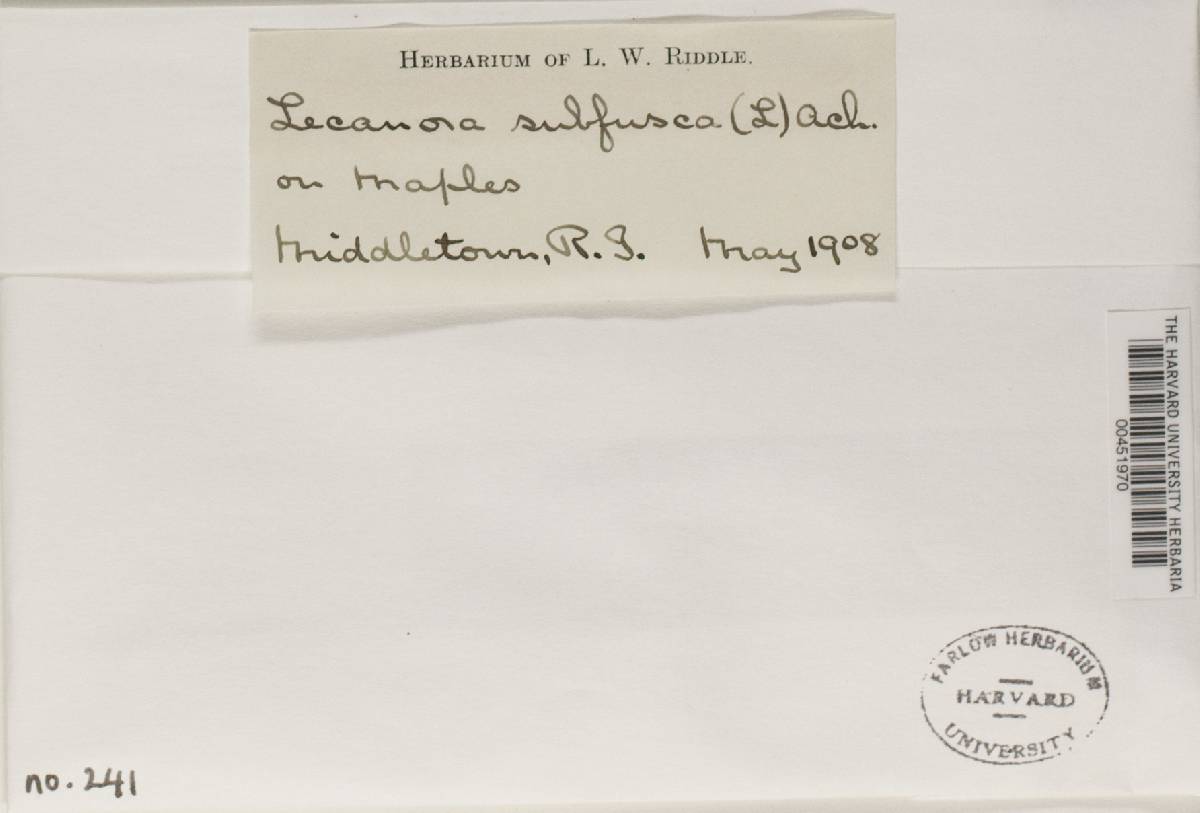 HERBARIUM OF L. W. RIDDLE.
Lecanora subfusca (L) Ach.
on Maples
Middletown, R.I. May 1908
THE HARVARD UNIVERSITY HERBARIA
00451970
FARLOW HERBARIUM
HARVARD
UNIVERSITY
no. 241